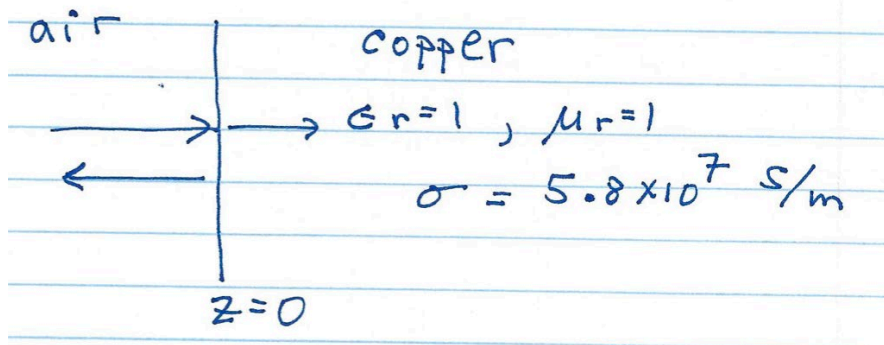 air
copper
ϵr=1, μr=1
σ = 5.8×10⁷ S/m
z=0